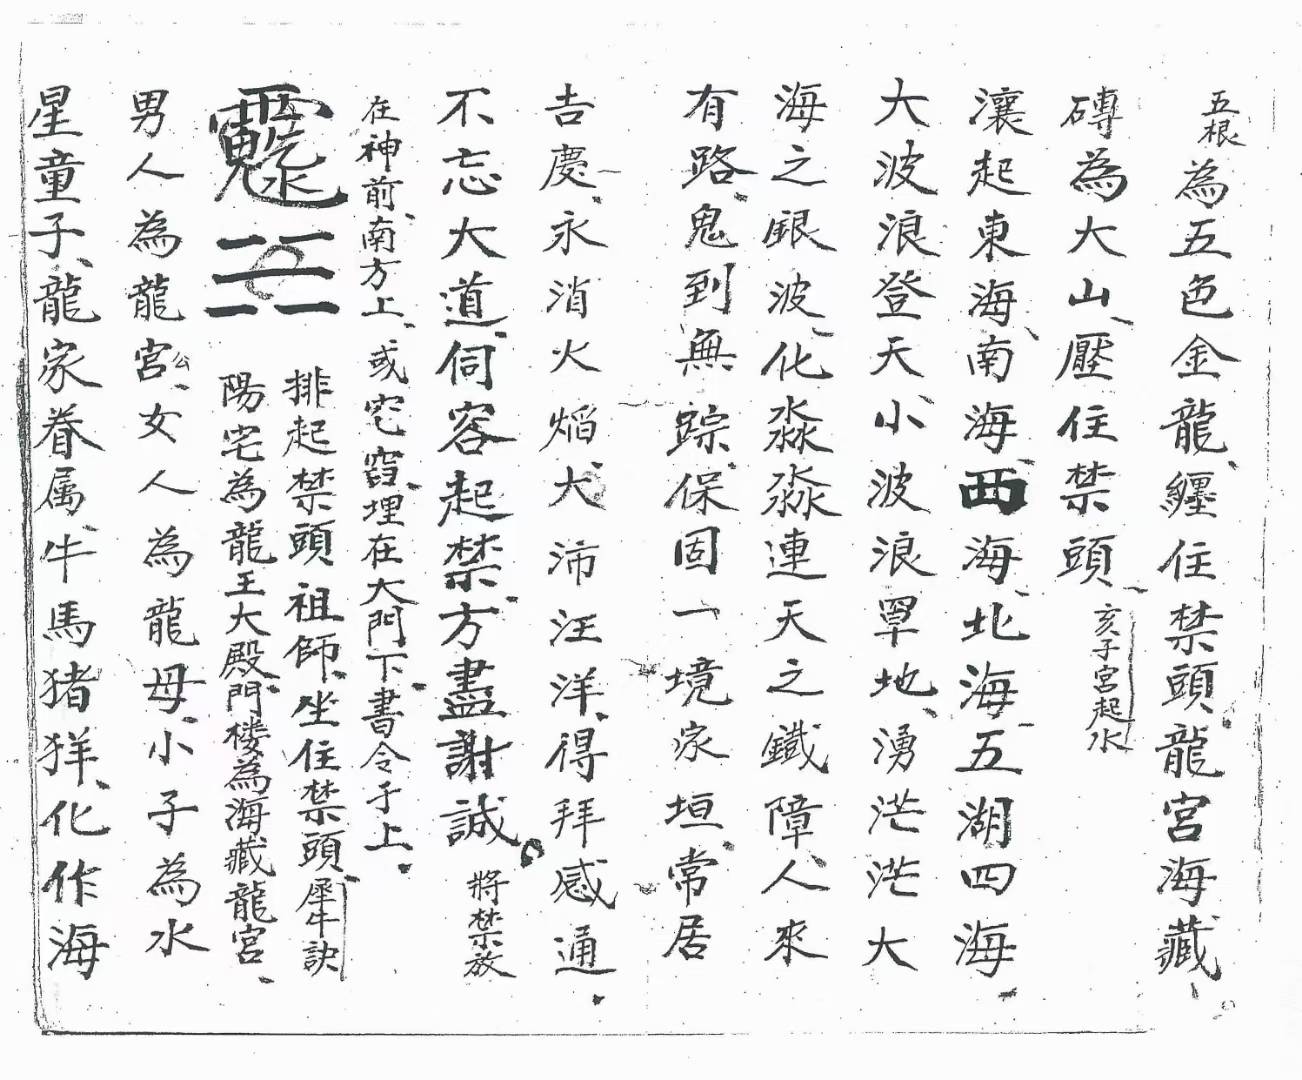 五根為五色金龍、纏住禁頭、龍宮海藏、
磚為大山、壓住禁頭、亥子宮起水
瀼起東海、南海、西海、北海、五湖四海、
大波浪登天、小波浪罩地、湧茫茫大
海之銀波、化淼淼連天之鐵障、人來
有路、鬼到無踪、保固一境、家垣、常居
吉慶、永消火焰、大沛汪洋、得拜感通、
不忘大道、伺容起禁、方盡謝誠。將禁放
在神前、南方上、或宅窞、埋在大門下、書令于上、
排起禁頭祖師、坐住禁頭、犀牛訣
陽宅為龍王大殿、門楼為海藏龍宮、
男人為龍宮公、女人為龍母、小子為水
星童子、龍家眷属、牛馬猪羊、化作海